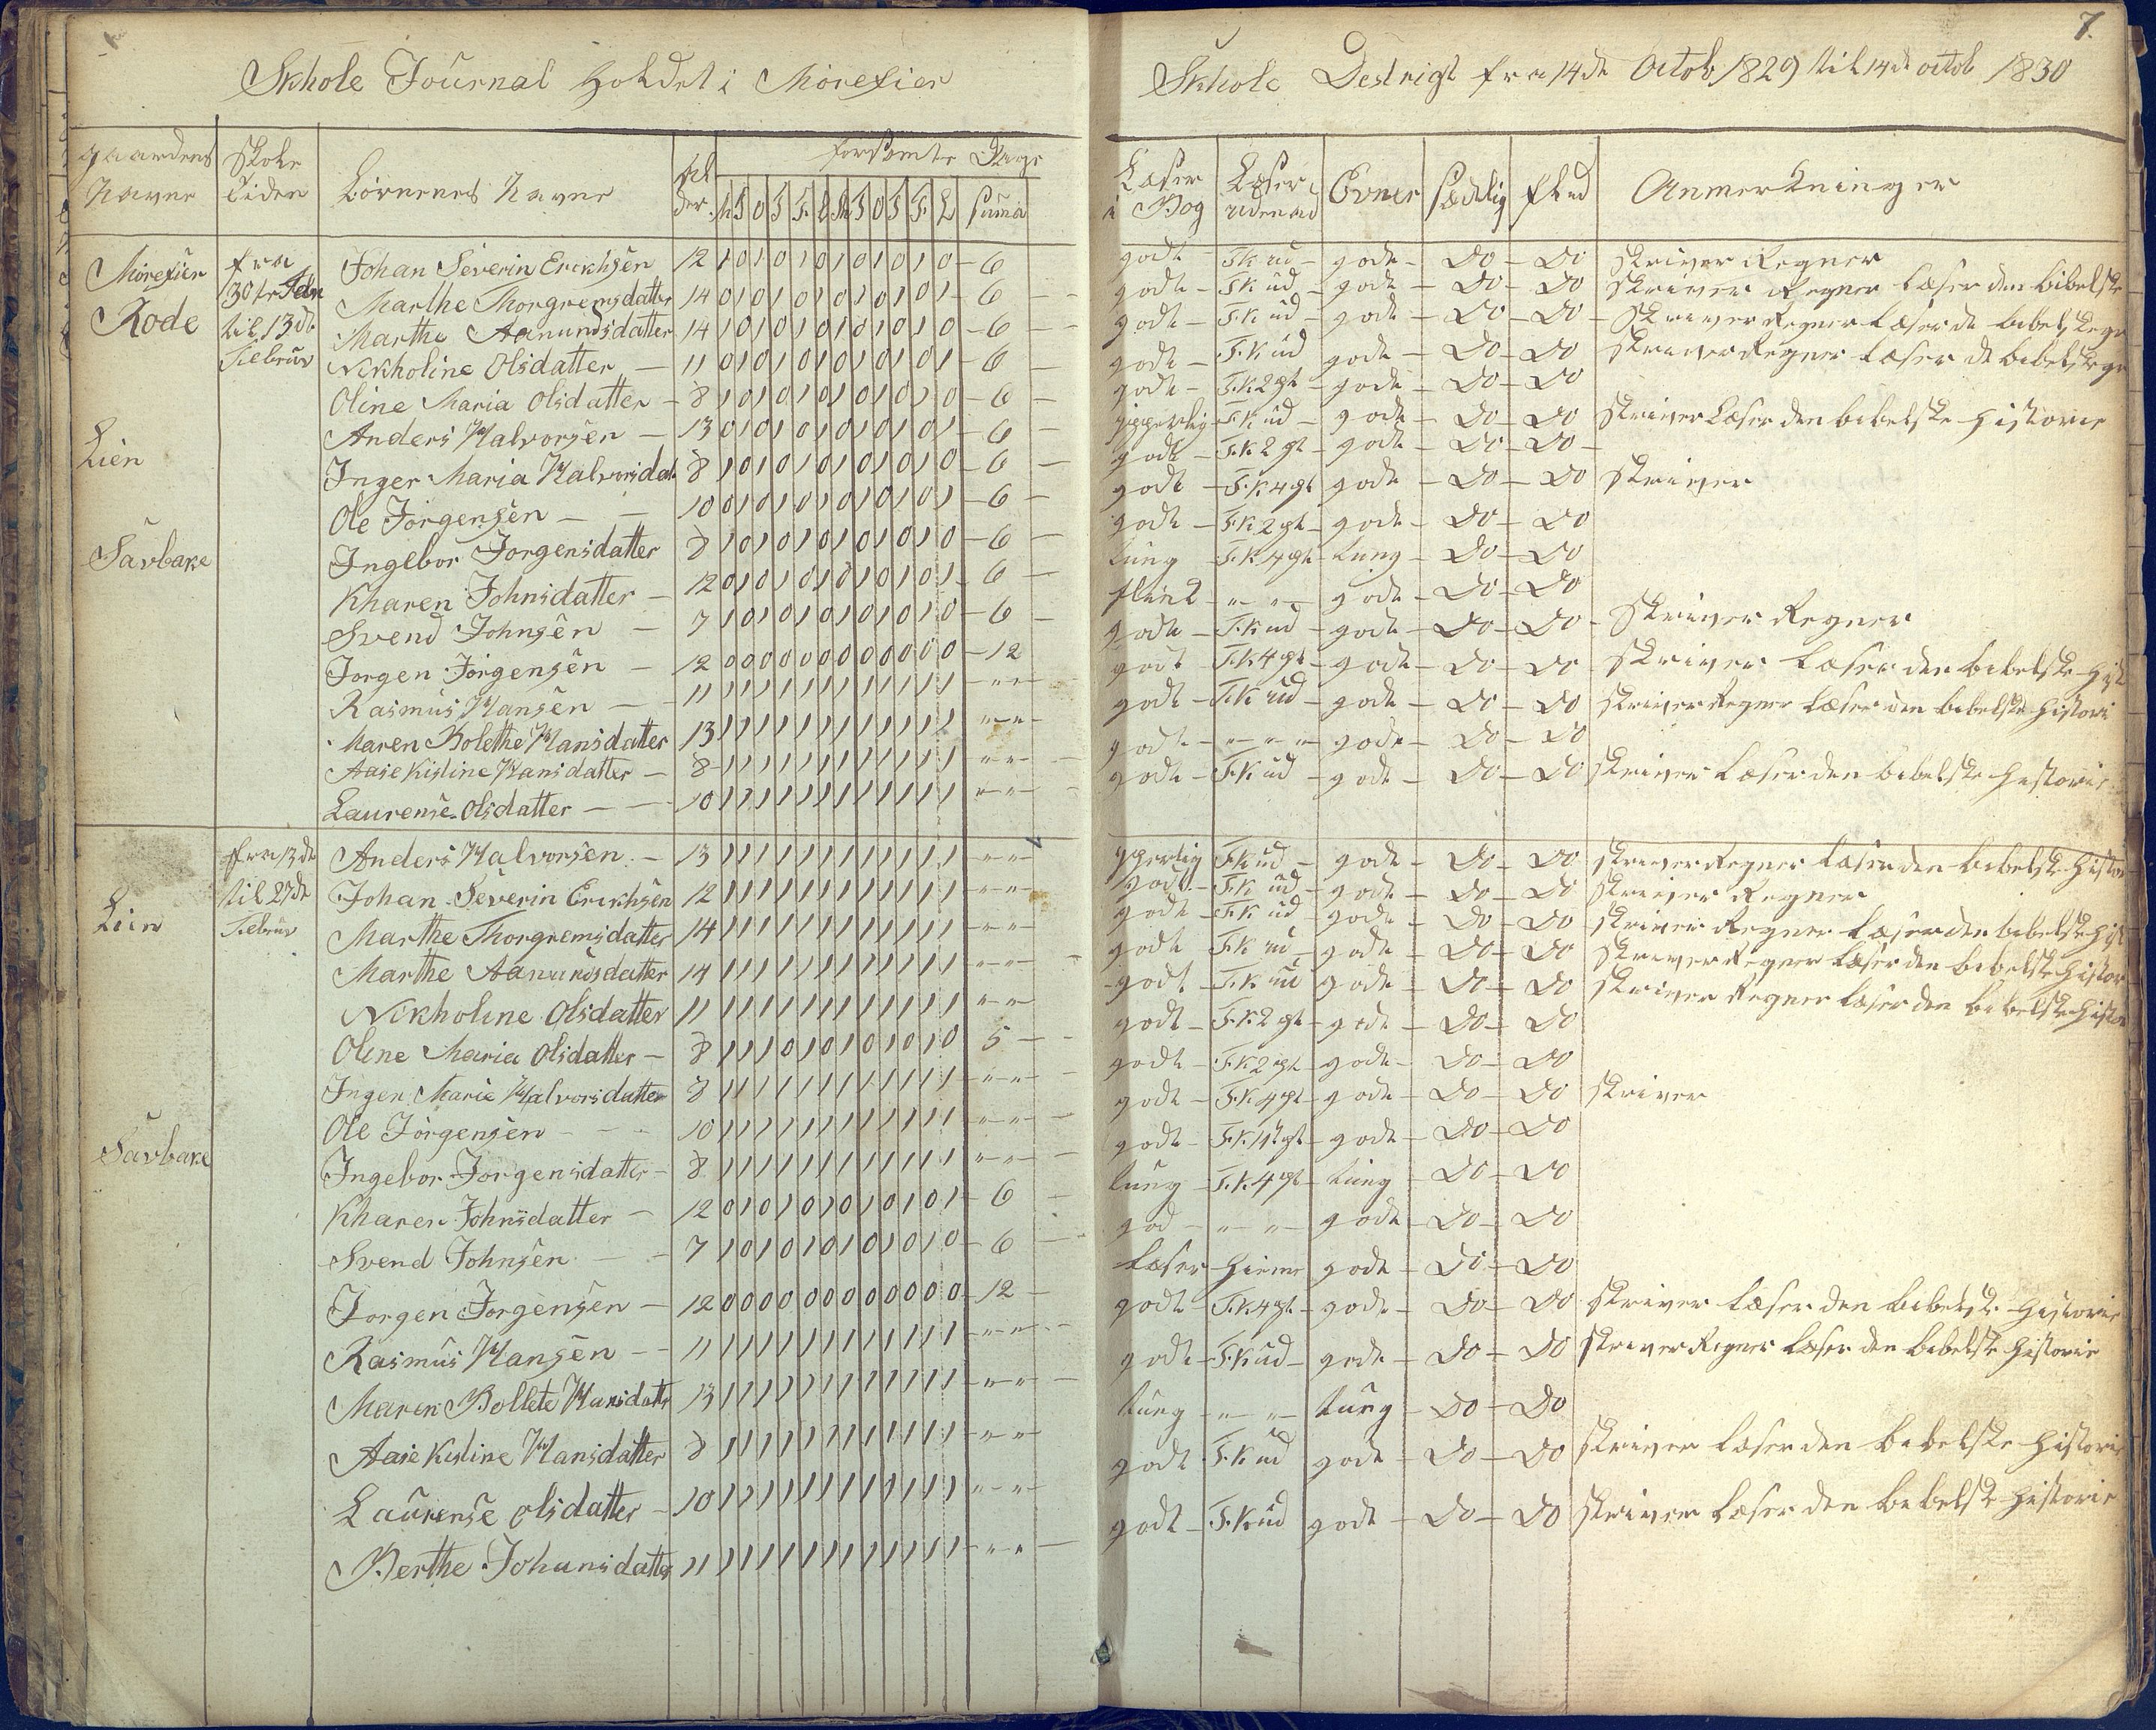 7.
Skhole Journal Holdet i Mörefier Skhole Destrigt fra 14de Octob 1829 til 14de octob 1830
gaardens Navne Skole Tiden Börnenes Navne Al der. forsömte Dage M T O T F L M T O T F L Suma Læser i Bog Læser udenad Evner sædelig flid Anmerkninger
Mörefier fra Johan Severin Erickhsen 12 1 0 1 0 1 0 1 0 1 0 1 0 - 6 godt - F K ud - gode - Do - Do skriver Regner
Rode 30te Jan Marthe Thorgremsdatter 14 0 1 0 1 0 1 0 1 0 1 0 1 - 6 godt - F K ud - gode - Do - Do skriver Regner Læser den bibelske
til 13de Marthe Aanundsdatter 14 1 0 1 0 1 0 1 0 1 0 1 0 - 6 godt - F K ud - gode - Do - Do - skriver Regner Læser de bibelske
Februar Nikholine Olsdatter - 11 0 1 0 1 0 1 0 1 0 1 0 1 - 6 godt - F.K ud gode - Do - Do skriver Regner Læser de bibelske
Oline Maria Olsdatter - 8 1 0 1 0 1 0 1 0 1 0 1 0 - 6 godt - F.K 2 pt - gode - Do - Do
Lien Anders Halvorsen - 13 0 1 0 1 0 1 0 1 0 1 0 1 - 6 F K ud - gode - Do - Do skriver Læser den bibelske Historie
Inger Maria Halvorsdat 8 1 0 1 0 1 0 1 0 1 0 1 0 - 6 godt - F.K 2 pt - gode - Do - Do -
Ole Jörgensen - - 10 0 1 0 1 0 1 0 1 0 1 0 1 - 6 godt - F.K 4 pt gode - Do - Do skriver
Savbake Ingebor Jorgensdatter 8 1 0 1 0 1 0 1 0 1 0 1 0 - 6 godt - F K 2 pt - gode - Do - Do
Kharen Johnsdatter - 12 0 1 0 1 0 1 0 1 0 1 0 1 - 6 tung - F.K 4 pt - tung - Do - Do
Svend Johnsen - 7 1 0 1 0 1 0 1 0 1 0 1 0 - 6 - " - " - gode - Do - Do
Jorgen Jörgensen - 12 0 0 0 0 0 0 0 0 0 0 0 0 - 12 godt - F.K ud - gode - Do - Do - skriver Regner
Rasmus Hansen - - 11 1 1 1 1 1 1 1 1 1 1 1 1 - " - " - godt - F.K 4 pt - gode - Do - Do skriver Læser den bibelske Hist
Maren Bolethe Hansdatter 13 1 1 1 1 1 1 1 1 1 1 1 1 " - " - godt - F.K ud - gode - Do - Do skriver Regner Læser den bibelske Histori
Aase Kistine Hansdatter - 8 1 1 1 1 1 1 1 1 1 1 1 1 " - " godt - " - " - " gode - Do - Do
Laurense Olsdatter - - 10 1 1 1 1 1 1 1 1 1 1 1 1 " - " - godt - F K ud - gode - Do - Do skriver Læser den bibelske Historie
Lien fra 13de Anders Halvorsen - 13 1 1 1 1 1 1 1 1 1 1 1 1 - " - " F K ud - gode - Do - Do skriver Regner Læser den bibelske Histori
til 27de Johan Severin Erickhsen 12 1 1 1 1 1 1 1 1 1 1 1 1 - " - " godt - F K ud - gode - Do - Do skriver Regner
Februar Marthe Thorgremsdatter 14 1 1 1 1 1 1 1 1 1 1 1 1 - " - " godt - F K ud - gode - Do - Do skriver Regner Læser den bibelske Hist
Marthe Aanundsdatter 14 1 1 1 1 1 1 1 1 1 1 1 1 - " - " godt F K ud - gode - Do - Do skriver Regner Læser den bibelske Histor
Nikholine Olsdatter 11 1 1 1 1 1 1 1 1 1 1 1 1 - " - " godt F K ud gode - Do - Do skriver Regner Læser den bibelske Histor
Oline Maria Olsdatter - 8 1 1 1 0 1 0 1 0 1 0 1 0 5 - godt - F.K 2 pt - gode - Do - Do
Inger Marie Halvorsdatter 8 1 1 1 1 1 1 1 1 1 1 1 1 - " - " - godt - F.K 2 pt gode - Do - Do
Ole Jörgensen - - 10 1 1 1 1 1 1 1 1 1 1 1 1 - " - " - godt - F.K 4 pt - gode - Do - Do skriver
Savbake Ingebor Jorgensdatter - 8 1 1 1 1 1 1 1 1 1 1 1 1 " - " - godt - F.K. pt - gode - Do - Do
Kharen Johnsdatter - 12 0 1 0 1 0 1 0 1 0 1 0 1 - 6 - tung - F.K. 4 pt - tung - Do - Do
Svend Johnsen - 7 1 0 1 0 1 0 1 0 1 0 1 0 - 6 - god - " - " - gode - Do - Do
Jorgen Jorgensen - 12 0 0 0 0 0 0 0 0 0 0 0 0 - 12 - Læser Hieme gode - Do - Do
Rasmus Hansen - - 11 1 1 1 1 1 1 1 1 1 1 1 1 - " - " - godt - F.K 4 pt - gode - Do - Do skriver Læser den bibelske Historie
Maren Bollete Hansdatter 13 1 1 1 1 1 1 1 1 1 1 1 1 - " - " - godt - F.K ud - gode - Do - Do skriver Regner Læser den bibelske Historie
Aase Kistine Hansdatter 8 1 1 1 1 1 1 1 1 1 1 1 1 - " - " tung - " - " - tung - Do - Do
Laurense Olsdatter - 10 1 1 1 1 1 1 1 1 1 1 1 1 - " - " godt - F.K ud gode - Do - Do skriver Læser den bibelske Historie
Berthe Johansdatter 11 1 1 1 1 1 1 1 1 1 1 1 1 - " - " - godt - F.K ud gode - Do - Do skriver Læser den bibelske Historie